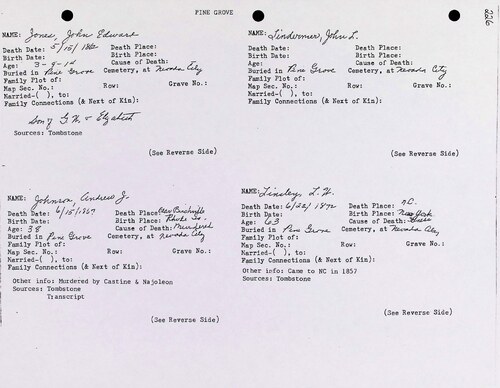 PINE GROVE
NAME: Jones, John Edward
Death Date: 5/15/1862 Death Place:
Birth Date: Birth Place:
Age: 3-8-14 Cause of Death:
Buried in Pine Grove Cemetery, at Nevada City
Family Plot of:
Map Sec. No.: Row: Grave No.:
Married-( ), to:
Family Connections (& Next of Kin):
Son of G.W. & Elizabeth
Sources: Tombstone
(See Reverse Side)
NAME: Lindermer, John L.
Death Date: Death Place:
Birth Date: Birth Place:
Age: Cause of Death:
Buried in Pine Grove Cemetery, at Nevada City
Family Plot of:
Map Sec. No.: Row: Grave No.:
Married-( ), to:
Family Connections (& Next of Kin):
(See Reverse Side)
NAME: Johnson, Andrew J.
Death Date: 6/15/1867 Death Place:
Birth Date: Birth Place: Rhode Is.
Age: 38 Cause of Death: Murdered
Buried in Pine Grove Cemetery, at Nevada City
Family Plot of:
Map Sec. No.: Row: Grave No.:
Married-( ), to:
Family Connections (& Next of Kin):
Other info: Murdered by Castine & Majoleon
Sources: Tombstone
Transcript
(See Reverse Side)
NAME: Linsley, L. W.
Death Date: 6/22/1872 Death Place: N.C.
Birth Date: Birth Place: New York
Age: 63 Cause of Death:
Buried in Pine Grove Cemetery, at Nevada City
Family Plot of:
Map Sec. No.: Row: Grave No.:
Married-( ), to:
Family Connections (& Next of Kin):
Other info: Came to NC in 1857
Sources: Tombstone
(See Reverse Side)